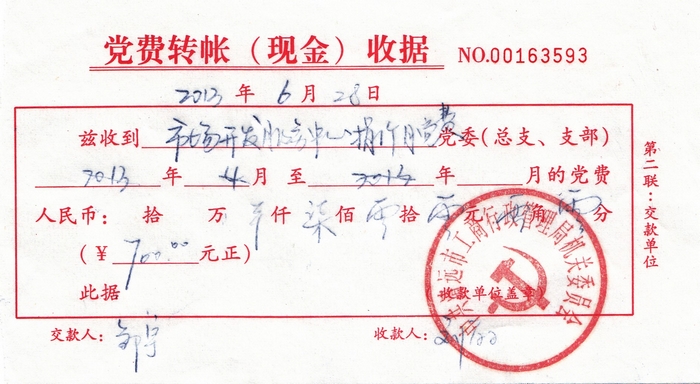 党费转帐（现金）收据 NO.00163593
2013 年 6 月 28 日
兹收到 市场开发服务中心 党费 党委（总支、支部）
2013 年 4 月 至 2013 年 月的党费
人民币： 拾 万 仟 柒 佰 零 拾 零 元 零 角 零 分
（¥ 700.00 元正）
此据 收款单位盖章
交款人： 收款人：
第二联：交款单位
远市工商行政管理局机关委员会